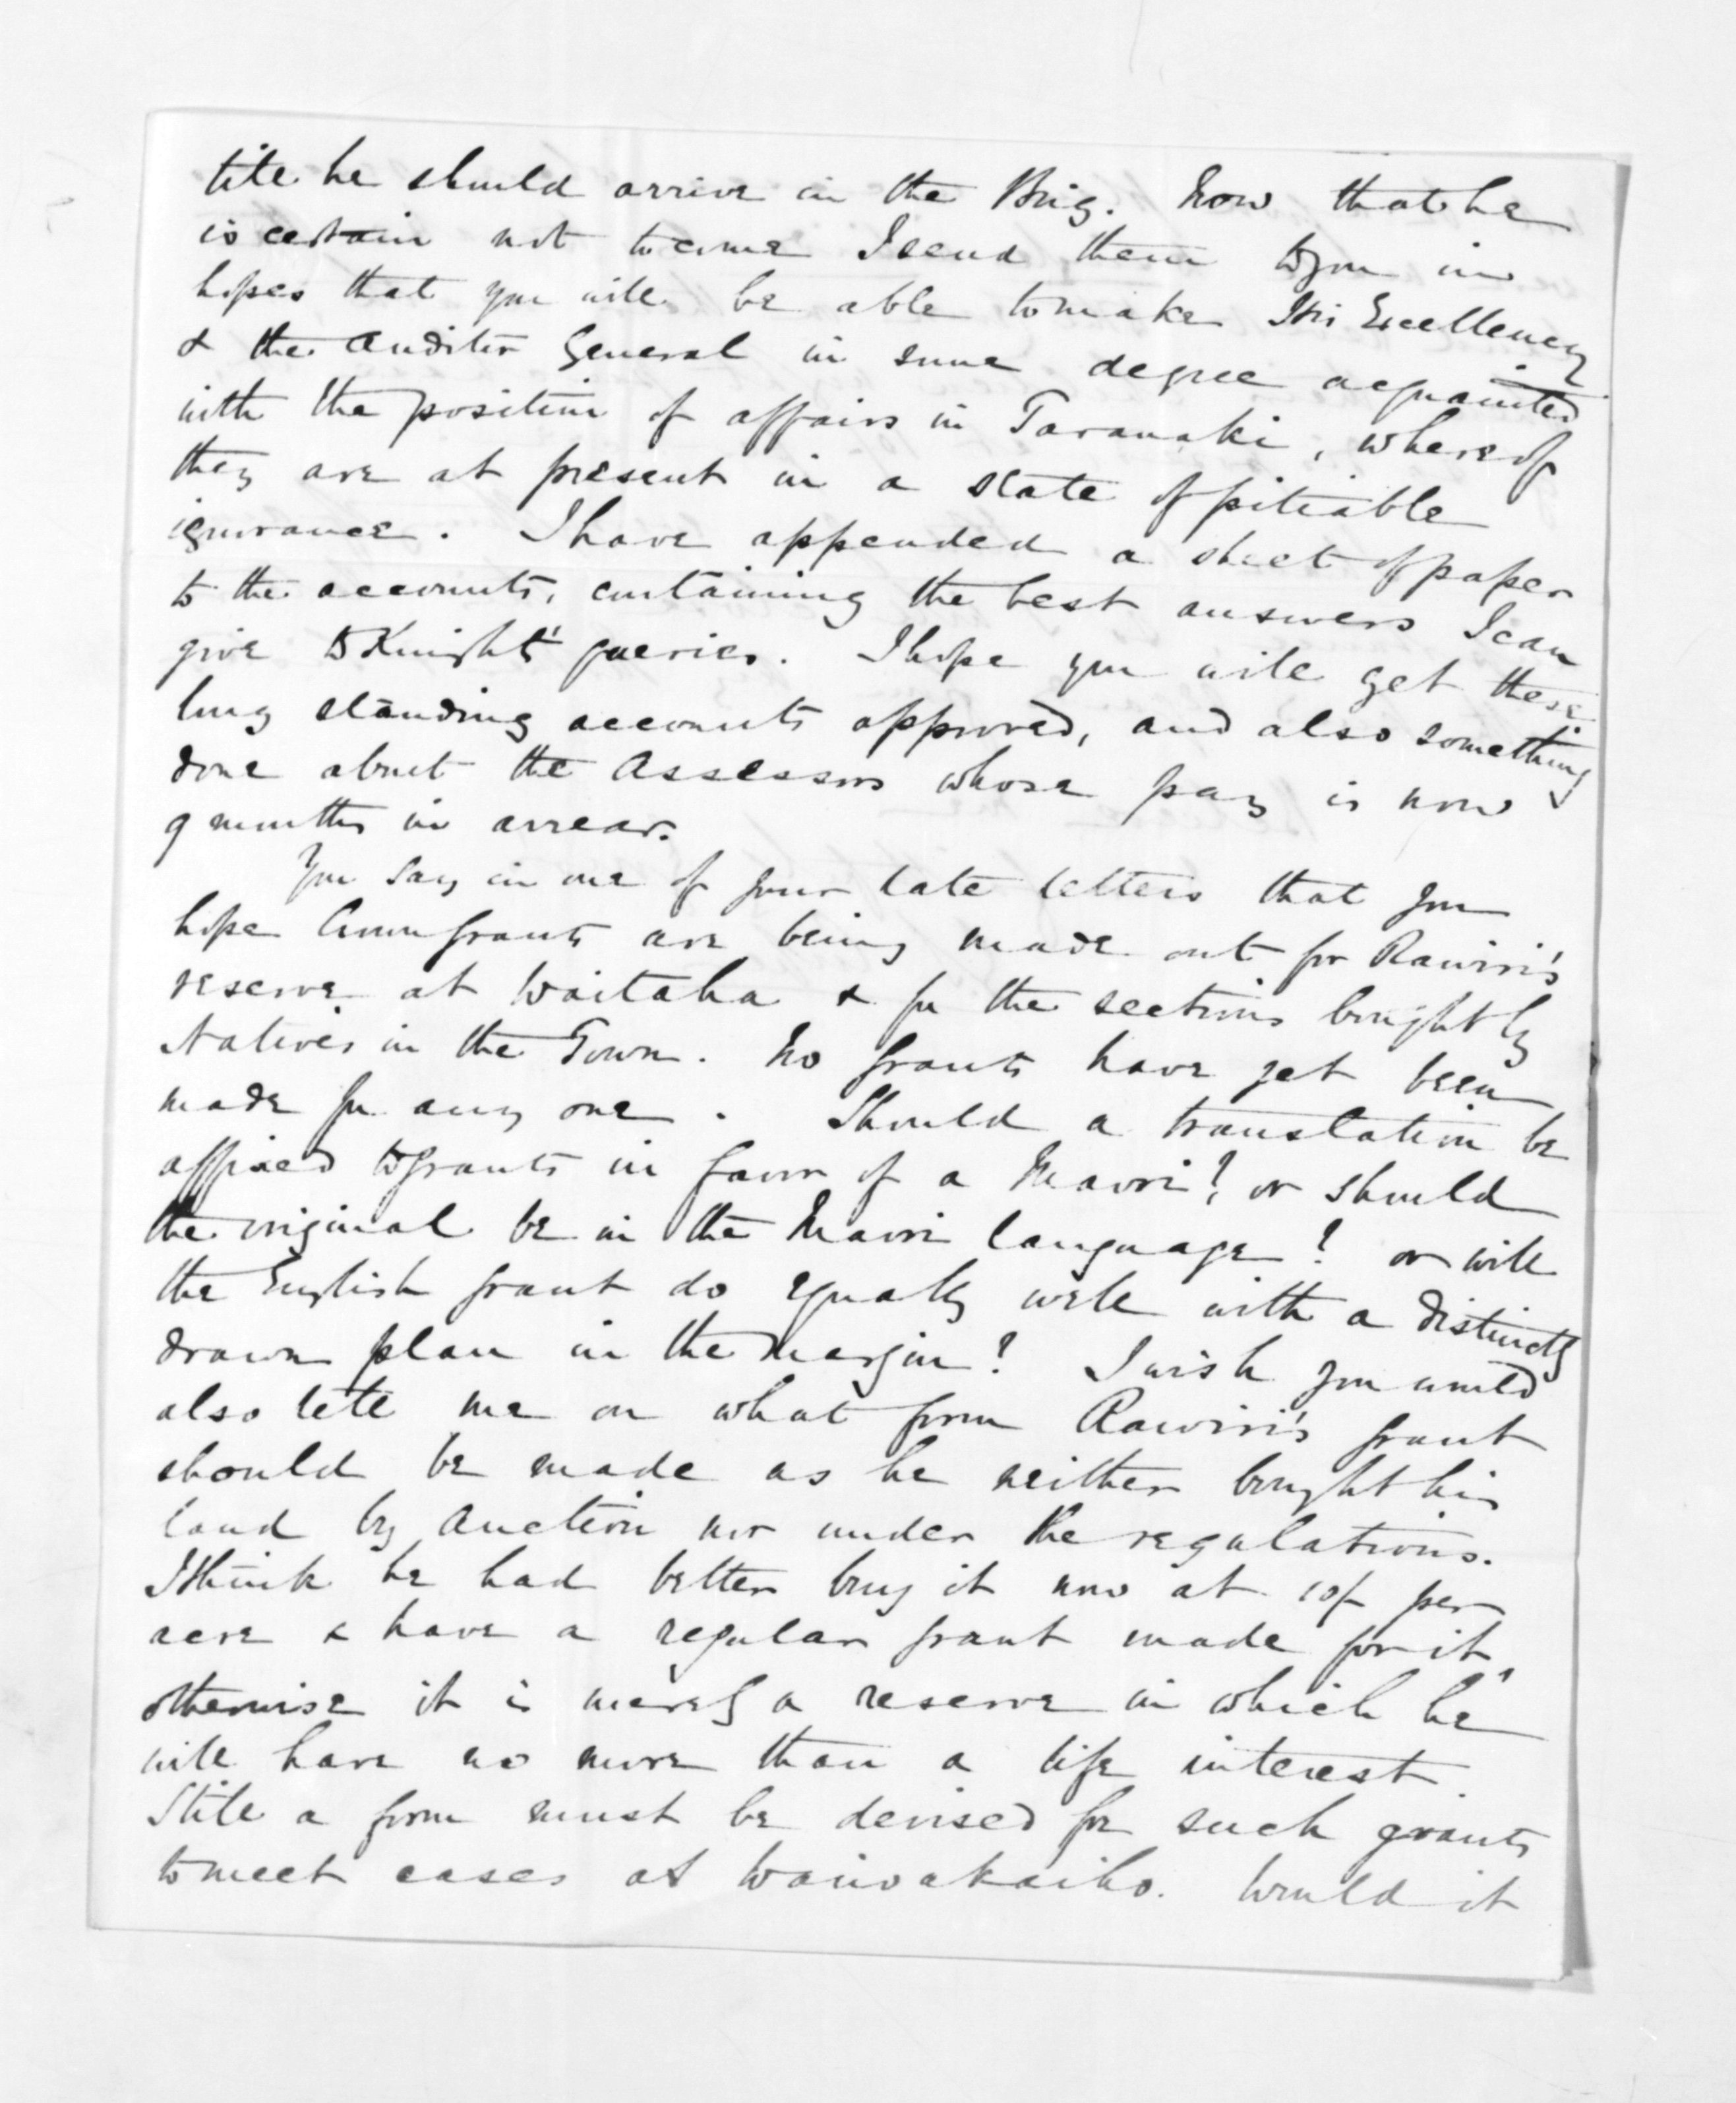 till he should arrive in the Brig. Now that he
is certain not to come I send them to you in
hopes that you will be able to make His Excellency
& the Auditor General in some degree acquainted
with the position of affairs in Taranaki, whereof
they are at present in a state of pitiable
ignorance. I have appended a sheet of paper
to the accounts, containing the best answers I can
give to Knight's queries. I hope you will get these
long standing accounts approved, and also something
done about the Assessors whose pay is now
9 months in arrear.
You say in one of your late letters that you
hope Crown grants are being made out for Rawiri's
reserve at Waitaha & for the sections bought by
Natives in the Town. No grants have yet been
made for any one. Should a translation be
affixed to grants in favor of a Maori? or should
the original be in the Maori language? or will
the English grant do equally well with a distinctly
drawn plan in the margin? I wish you would
also tell me on what form Rawiri's grant
should be made as he neither bought his
land by Auction nor under the regulations.
I think he had better buy it now at 10/- per
acre & have a regular grant made for it,
otherwise it is merely a reserve in which he
will have no more than a life interest.
Still a form must be devised for such grants
to meet cases at Waiwakaiho. Would it